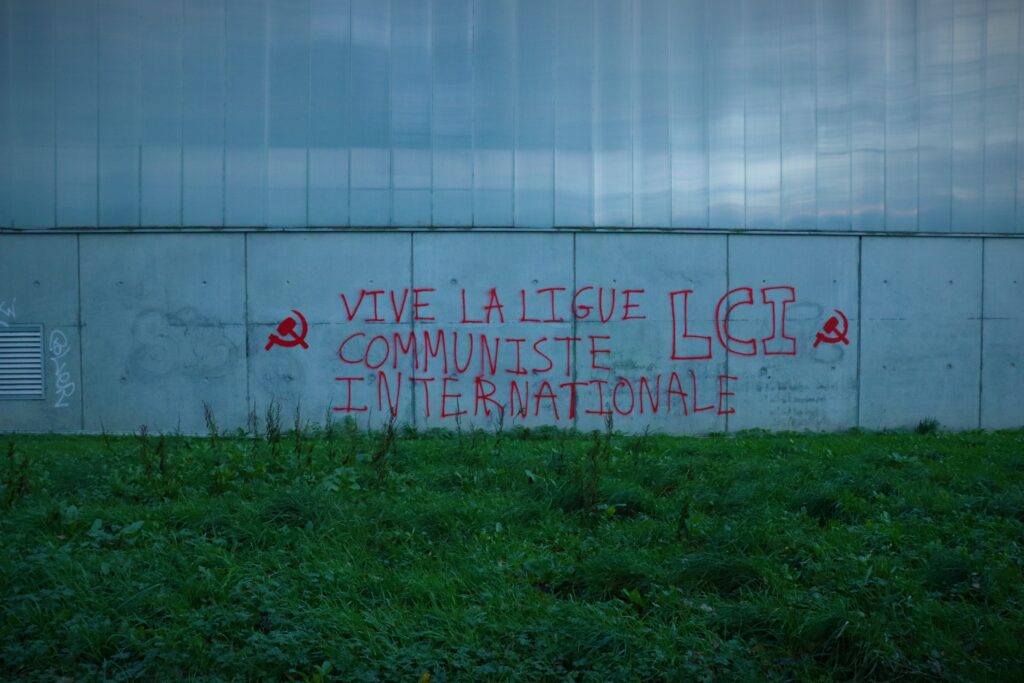 VIVE LA LIGUE
COMMUNISTE
INTERNATIONALE
LCI